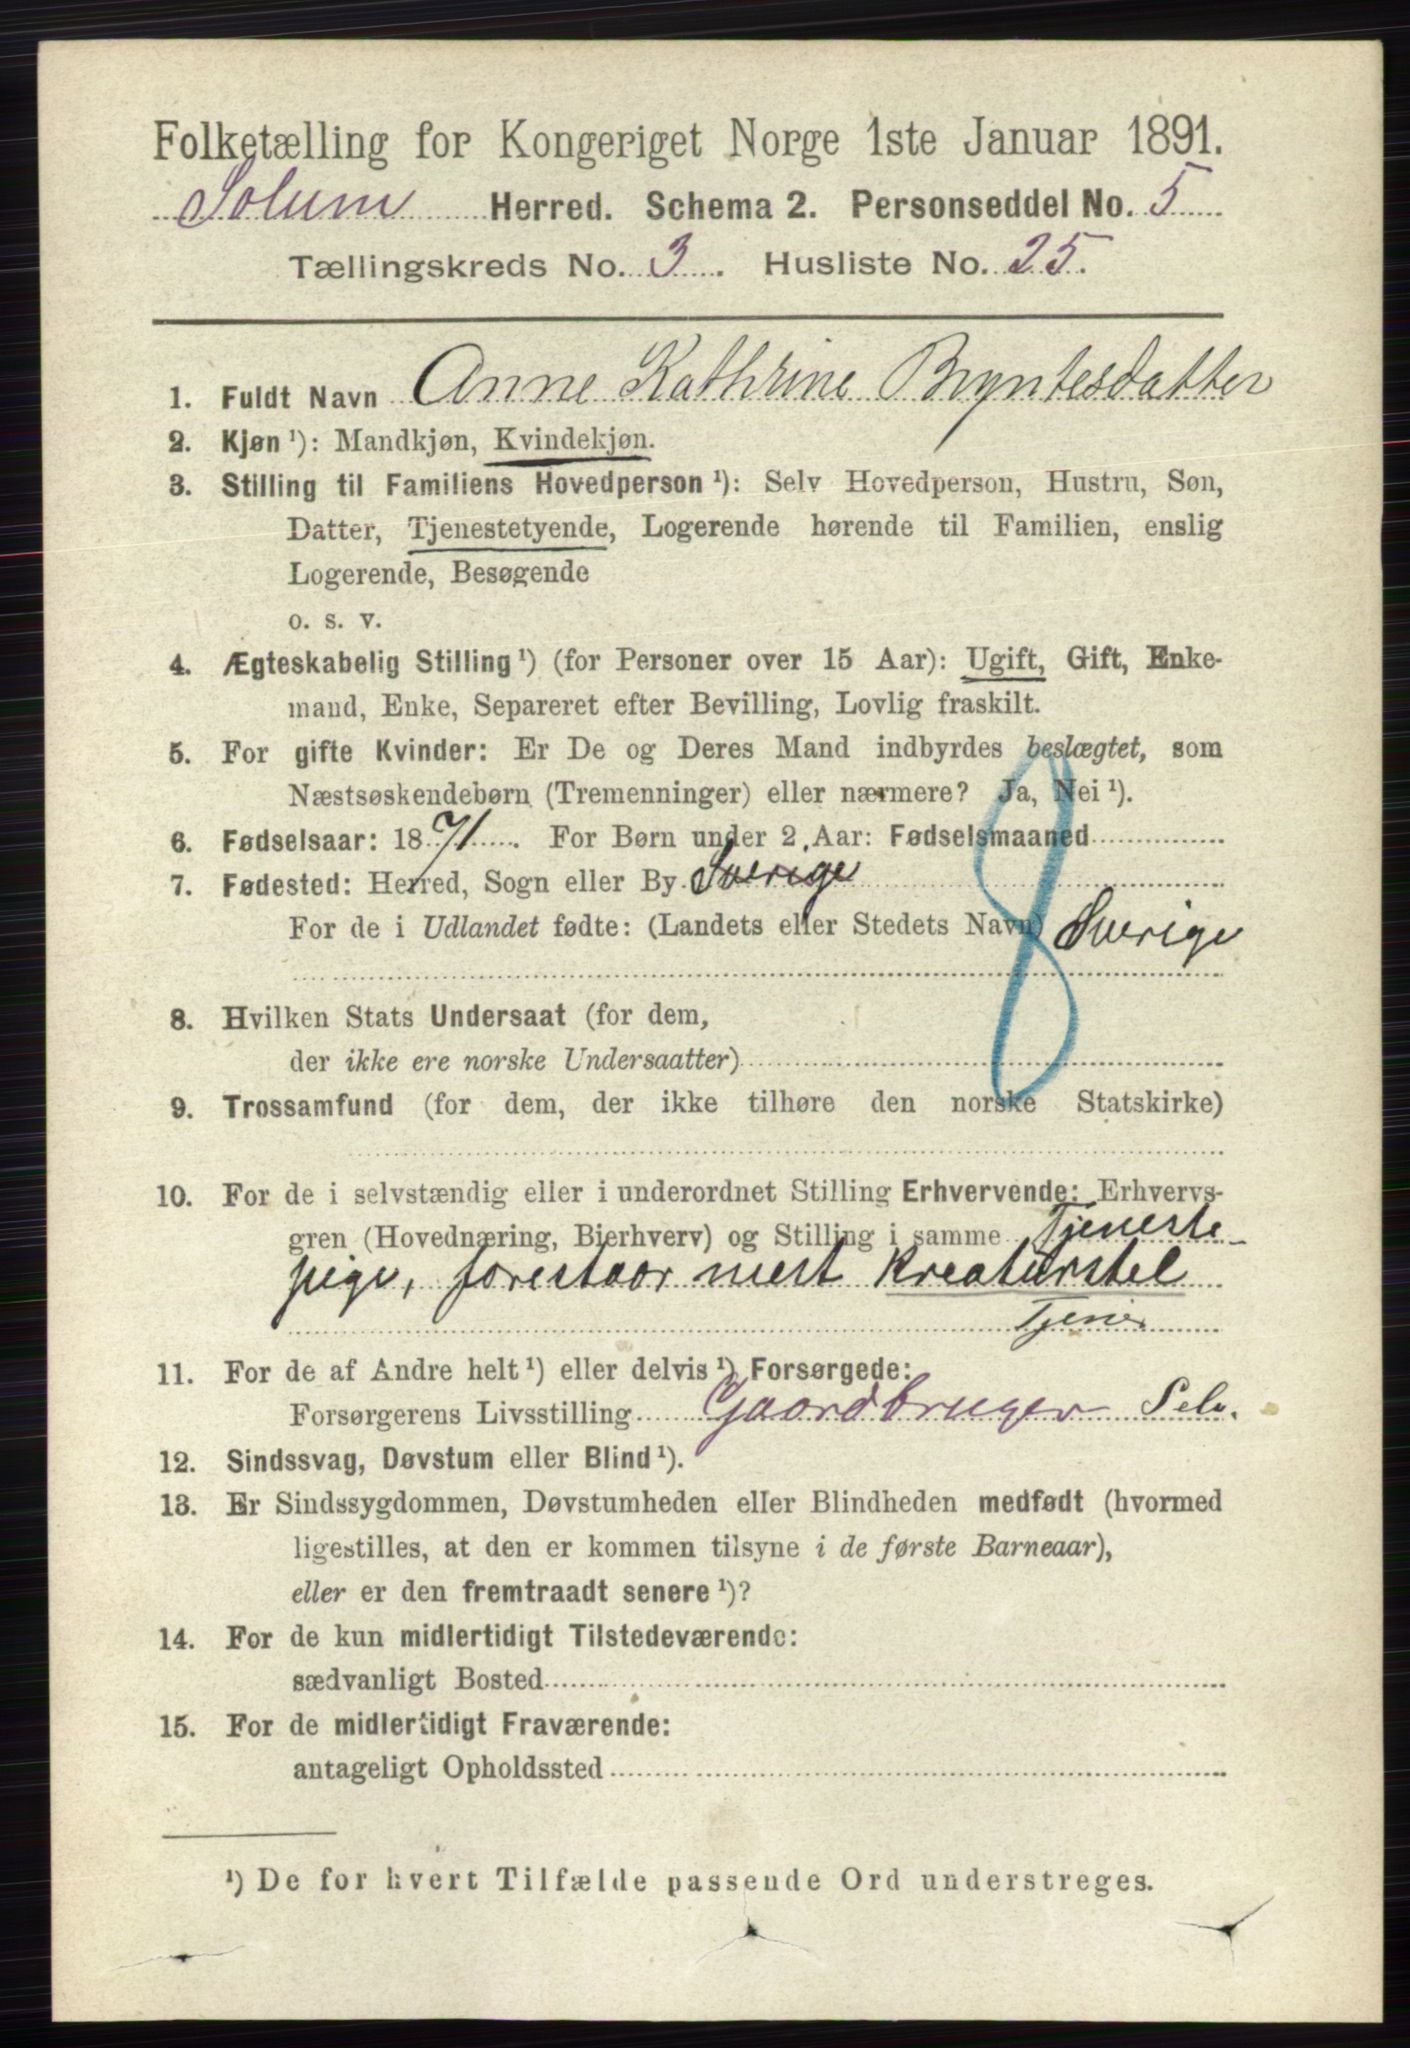 Folketælling for Kongeriget Norge 1ste Januar 1891.
Solum Herred. Schema 2. Personseddel No. 5
Tællingskreds No. 3. Husliste No. 25.
1. Fuldt Navn Anne Kathrine Bryntesdatter
2. Kjøn ¹): Mandkjøn, Kvindekjøn.
3. Stilling til Familiens Hovedperson ¹): Selv Hovedperson, Hustru, Søn,
Datter, Tjenestetyende, Logerende hørende til Familien, enslig
Logerende, Besøgende
o. s. v.
4. Ægteskabelig Stilling ¹) (for Personer over 15 Aar): Ugift, Gift, Enke-
mand, Enke, Separeret efter Bevilling, Lovlig fraskilt.
5. For gifte Kvinder: Er De og Deres Mand indbyrdes beslægtet, som
Næstsøskendebørn (Tremenninger) eller nærmere? Ja, Nei ¹).
6. Fødselsaar: 1871. For Børn under 2 Aar: Fødselsmaaned
7. Fødested: Herred, Sogn eller By Sverige
For de i Udlandet fødte: (Landets eller Stedets Navn) Sverige
8
8. Hvilken Stats Undersaat (for dem,
der ikke ere norske Undersaatter)
9. Trossamfund (for dem, der ikke tilhøre den norske Statskirke)
10. For de i selvstændig eller i underordnet Stilling Erhvervende: Erhvervs-
gren (Hovednæring, Bierhverv) og Stilling i samme Tjeneste-
pige, forestaar mest Kreaturstel
Tjener
11. For de af Andre helt ¹) eller delvis ¹) Forsørgede:
Forsørgerens Livsstilling Gaardbruger Selv.
12. Sindssvag, Døvstum eller Blind ¹).
13. Er Sindssygdommen, Døvstumheden eller Blindheden medfødt (hvormed
ligestilles, at den er kommen tilsyne i de første Barneaar),
eller er den fremtraadt senere ¹)?
14. For de kun midlertidigt Tilstedeværende:
sædvanligt Bosted
15. For de midlertidigt Fraværende:
antageligt Opholdssted
¹) De for hvert Tilfælde passende Ord understreges.